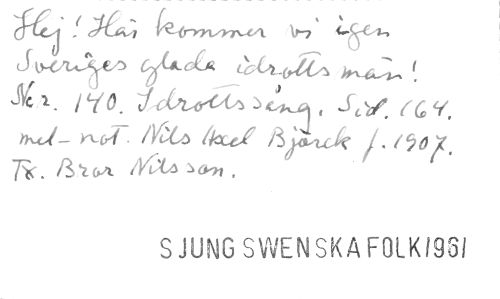 Hej! Här kommer vi igen
Sveriges glada idrotts män!
N:r. 140. Idrottssång. Sid. 164.
mel-not. Nils Axel Björck f. 1907.
Tx. Bror Nilsson.
SJUNG SWENSKA FOLK 1961